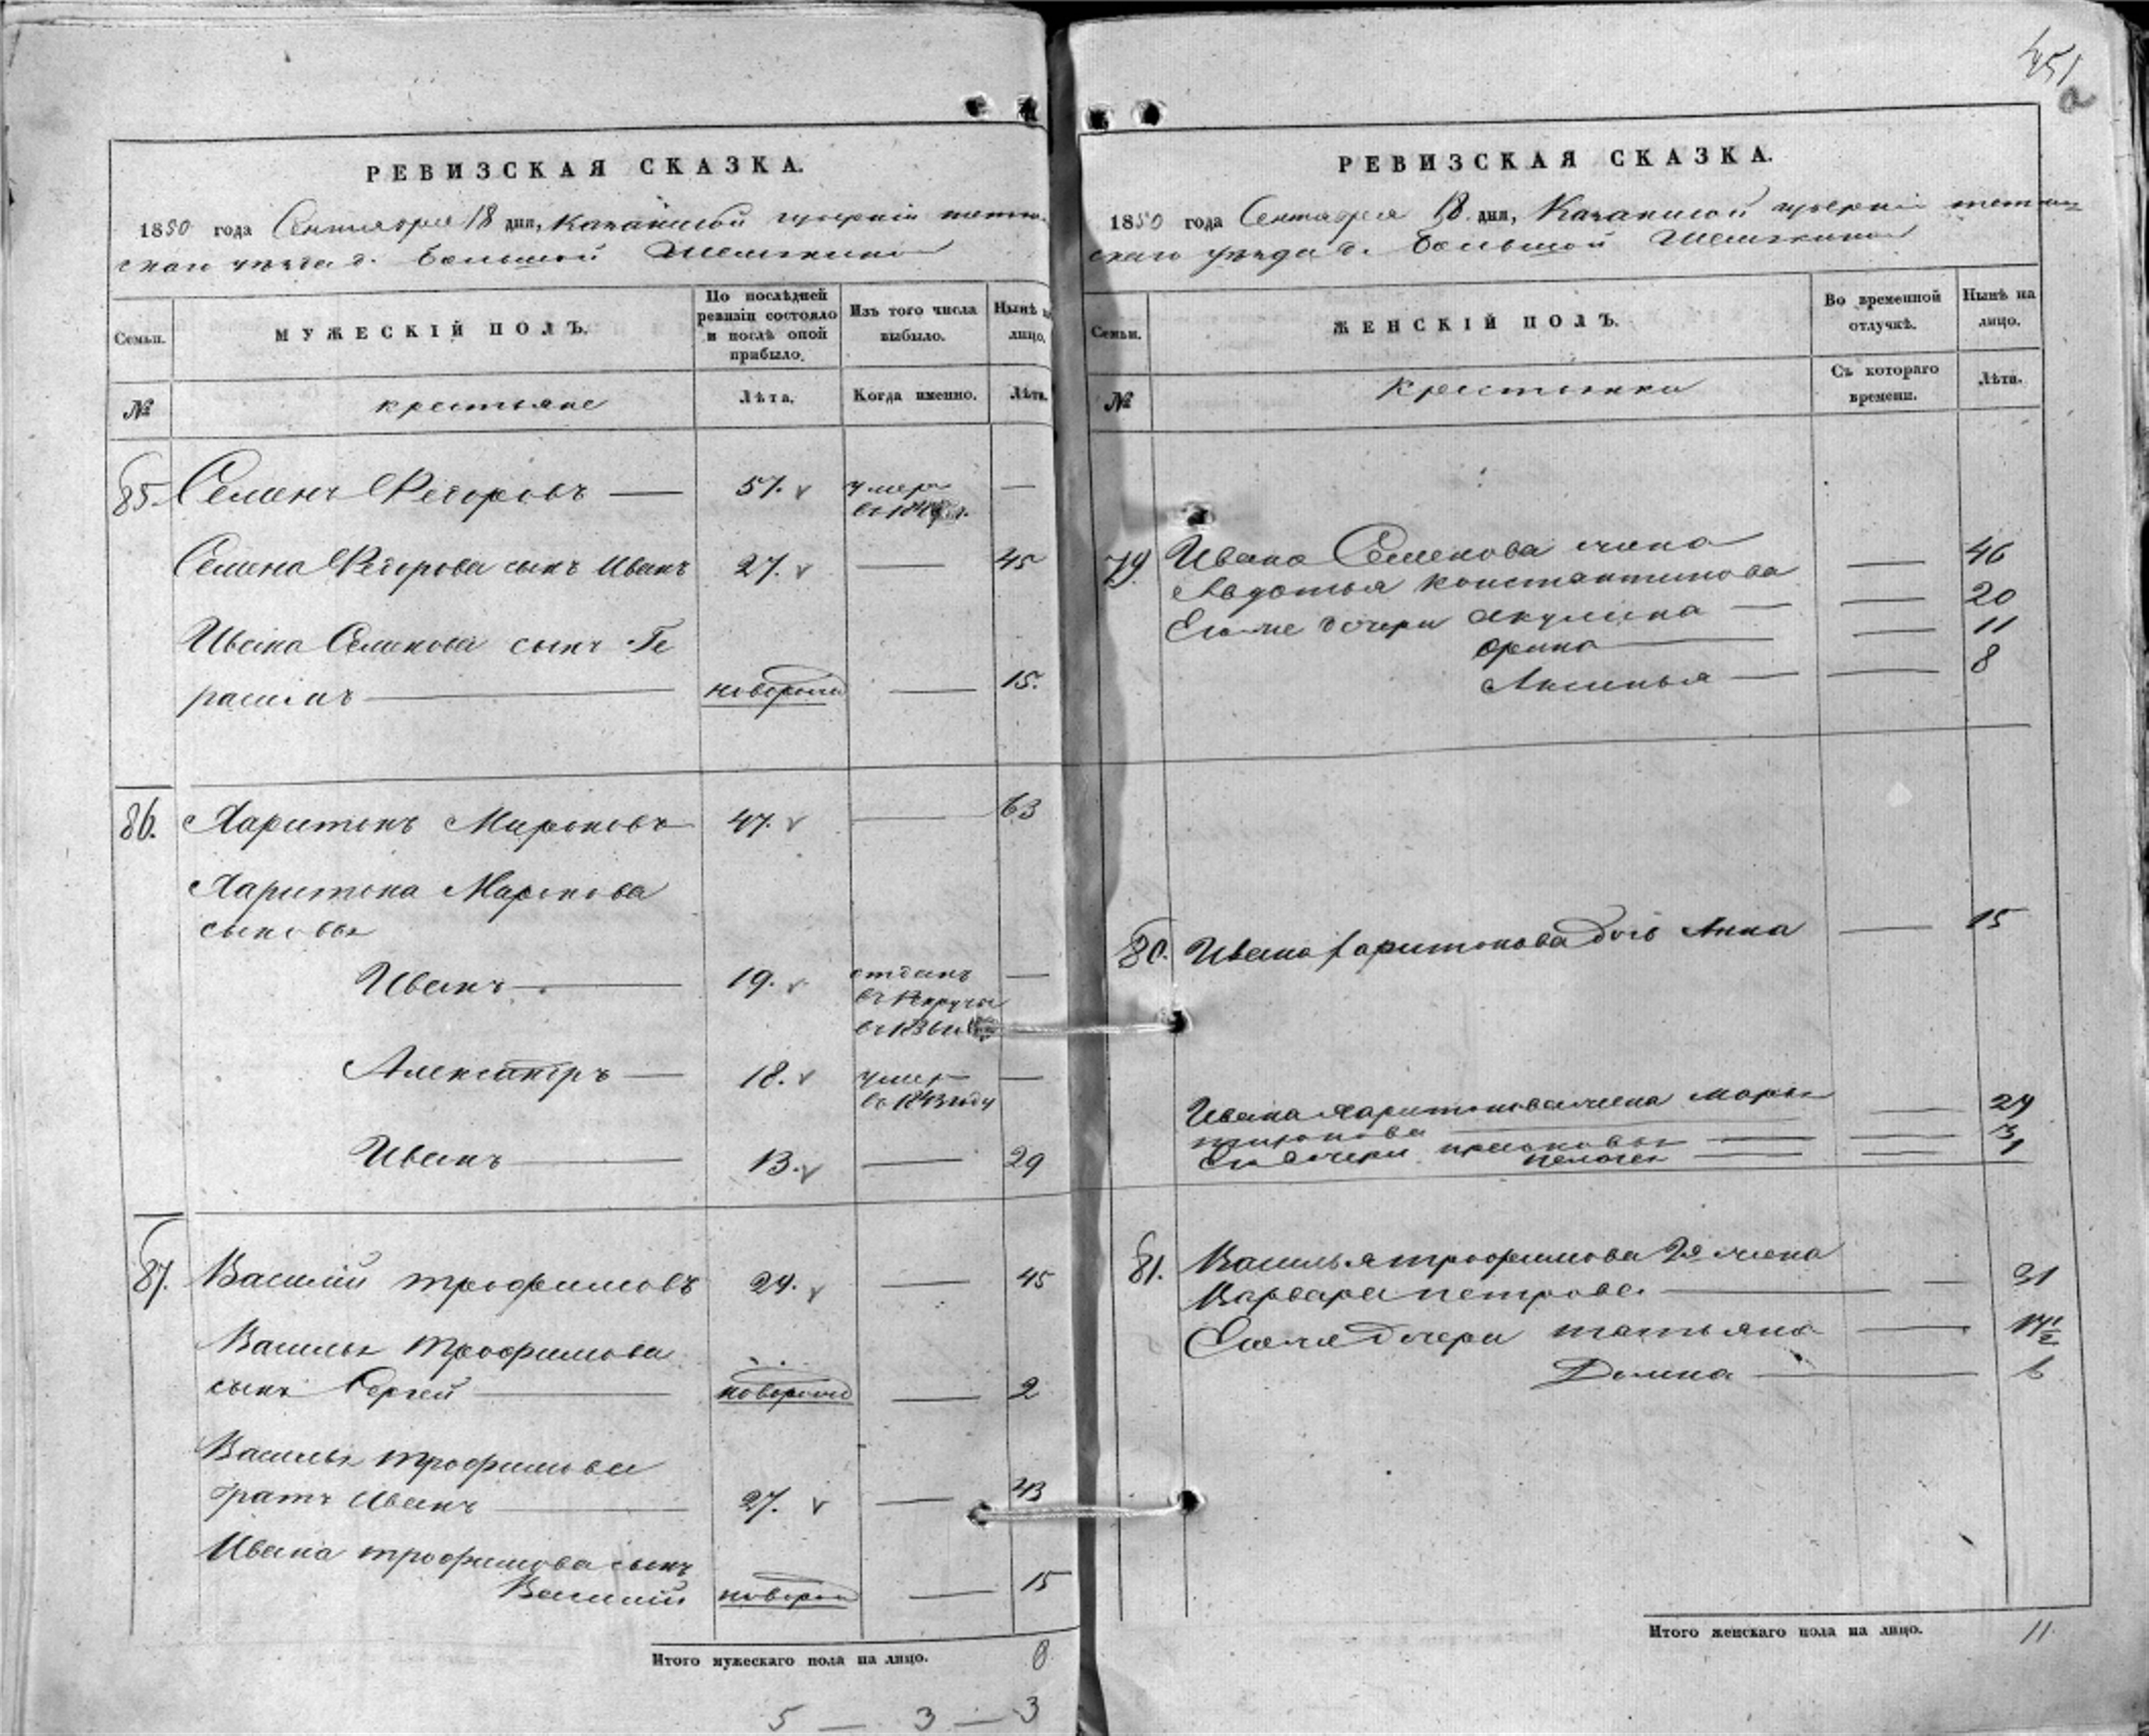 451
а
РЕВИЗСКАЯ СКАЗКА.
1850 года Сентября 18 дня, Казанской губернии тетю-
скаго уезда д. Большой Шемякиной
Семьи.
МУЖЕСКІЙ ПОЛЪ.
По послѣдней ревизіи состояло и послѣ оной прибыло.
Изъ того числа выбыло.
Нынѣ на лицо.
№
крестьяне
Лѣта.
Когда именно.
Лѣта.
85. Семенъ Федоровъ — 57. v умеръ —
Семена Федорова сынъ Иванъ 27. v — 45
Ивана Семенова сынъ Ге
расимъ — новорож — 15.
86. Харитонъ Мироновъ 47. v — 63
Харитона Миронова
сыновья
Иванъ — 19. v отданъ —
въ рекруты
в 1836
Александръ — 18. v умер —
в 1843 году
Иванъ — 13. v — 29
87. Василій трофимовъ 29. v — 45
Василья Трофимова
сынъ Сергей — новорожд — 2
Василья трофимова
братъ Иванъ — 27. v — 43
Ивана трофимова сынъ
Василий новорож — 15
Итого мужескаго пола на лицо. 8
5 — 3 — 3
РЕВИЗСКАЯ СКАЗКА.
1850 года Сентября 18 дня, Казанской губернии тетю-
скаго уезда д. Большой Шемякиной
Семьи.
ЖЕНСКІЙ ПОЛЪ.
Во временной отлучкѣ.
Нынѣ на лицо.
№
крестьянки
Съ котораго времени.
Лѣта.
79 Ивана Семенова жена
Авдотья константинова — 46
Его же дочери акулина — — 20
орина — — 11
Аксинья — — 8
80. Ивана Харитонова дочь Анна — 15
Ивана харитонова жена марья — 24
его дочери прасковья — — 3
пелагея — — 1
81. Василья трофимова 2я жена
Варвара петрова — — 31
Его же дочери татьяна — 14 1/2
Домна — 6
Итого женскаго пола на лицо. 11